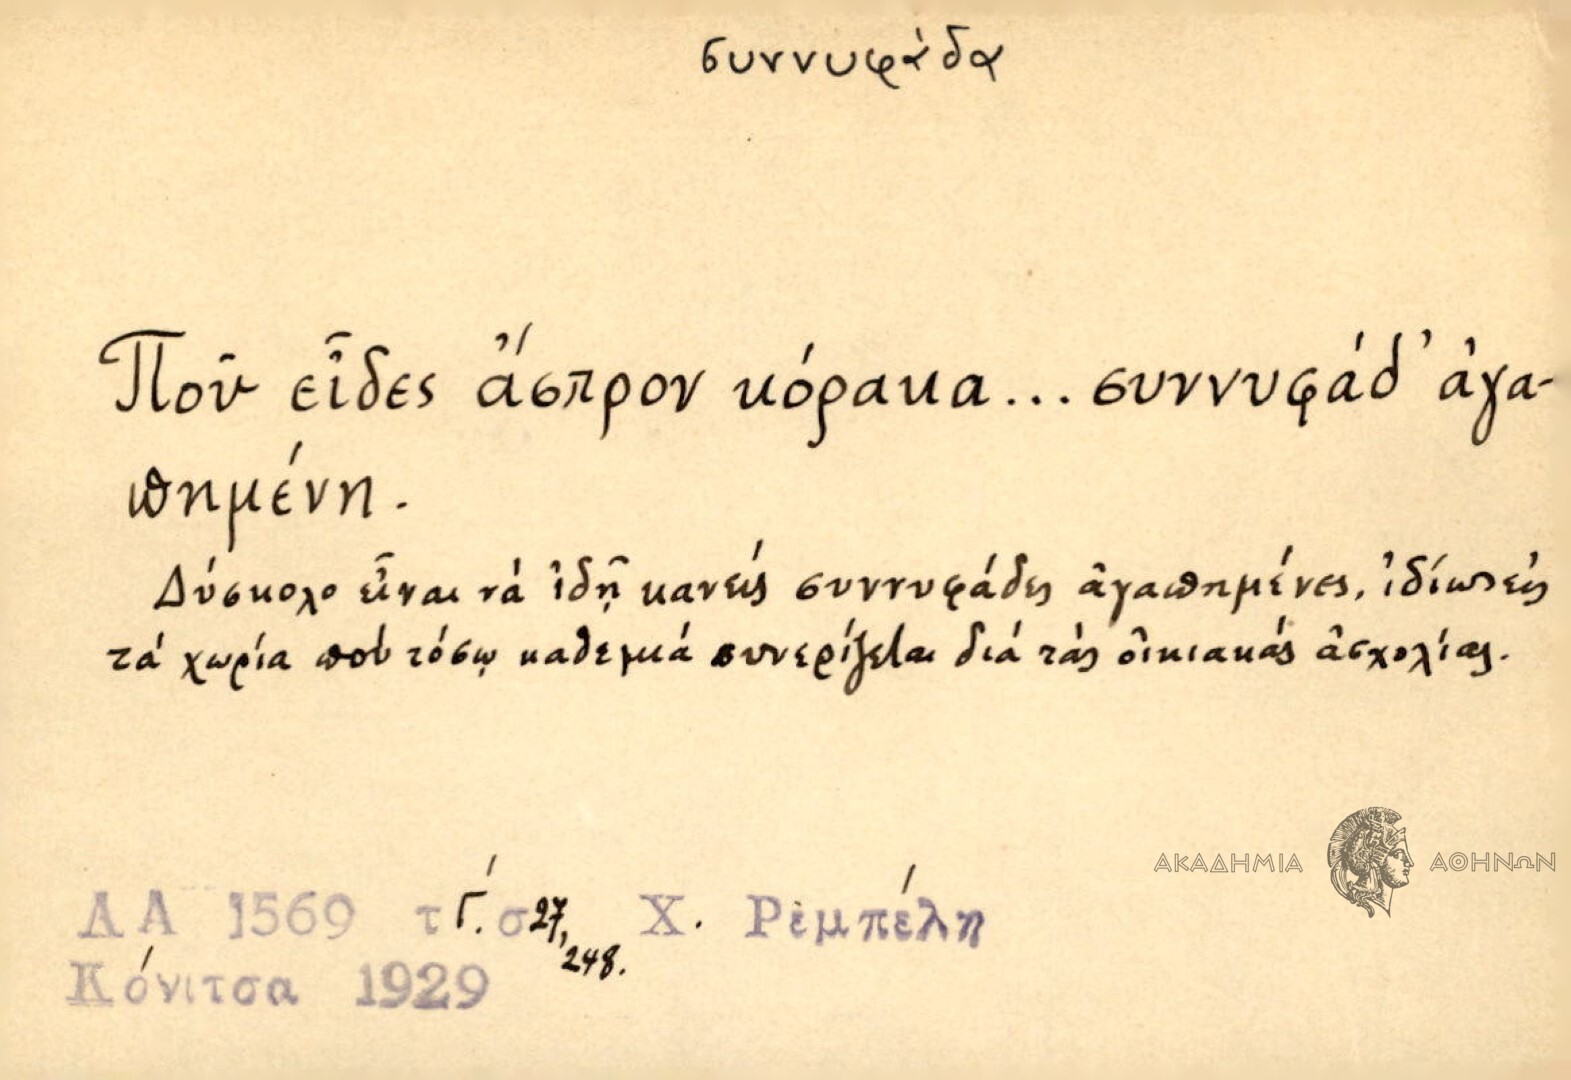 συννυφάδα
Ποῦ εἶδες ἄσπρον κόρακα... συννυφάδ' ἀγα-
πημένη.
Δύσκολο εἶναι νά ἰδῇ κανείς συννυφάδες ἀγαπημένες, ἰδίως εἰς
τά χωρία πού τόσῳ καθεμιά συνερίζεται διά τάς οἰκιακάς ἀσχολίας.
ΑΚΑΔΗΜΙΑ ΑΘΗΝΩΝ
ΛΑ 1569 τ Γ΄. σ 27, 248. Χ. Ρεμπέλη
Κόνιτσα 1929